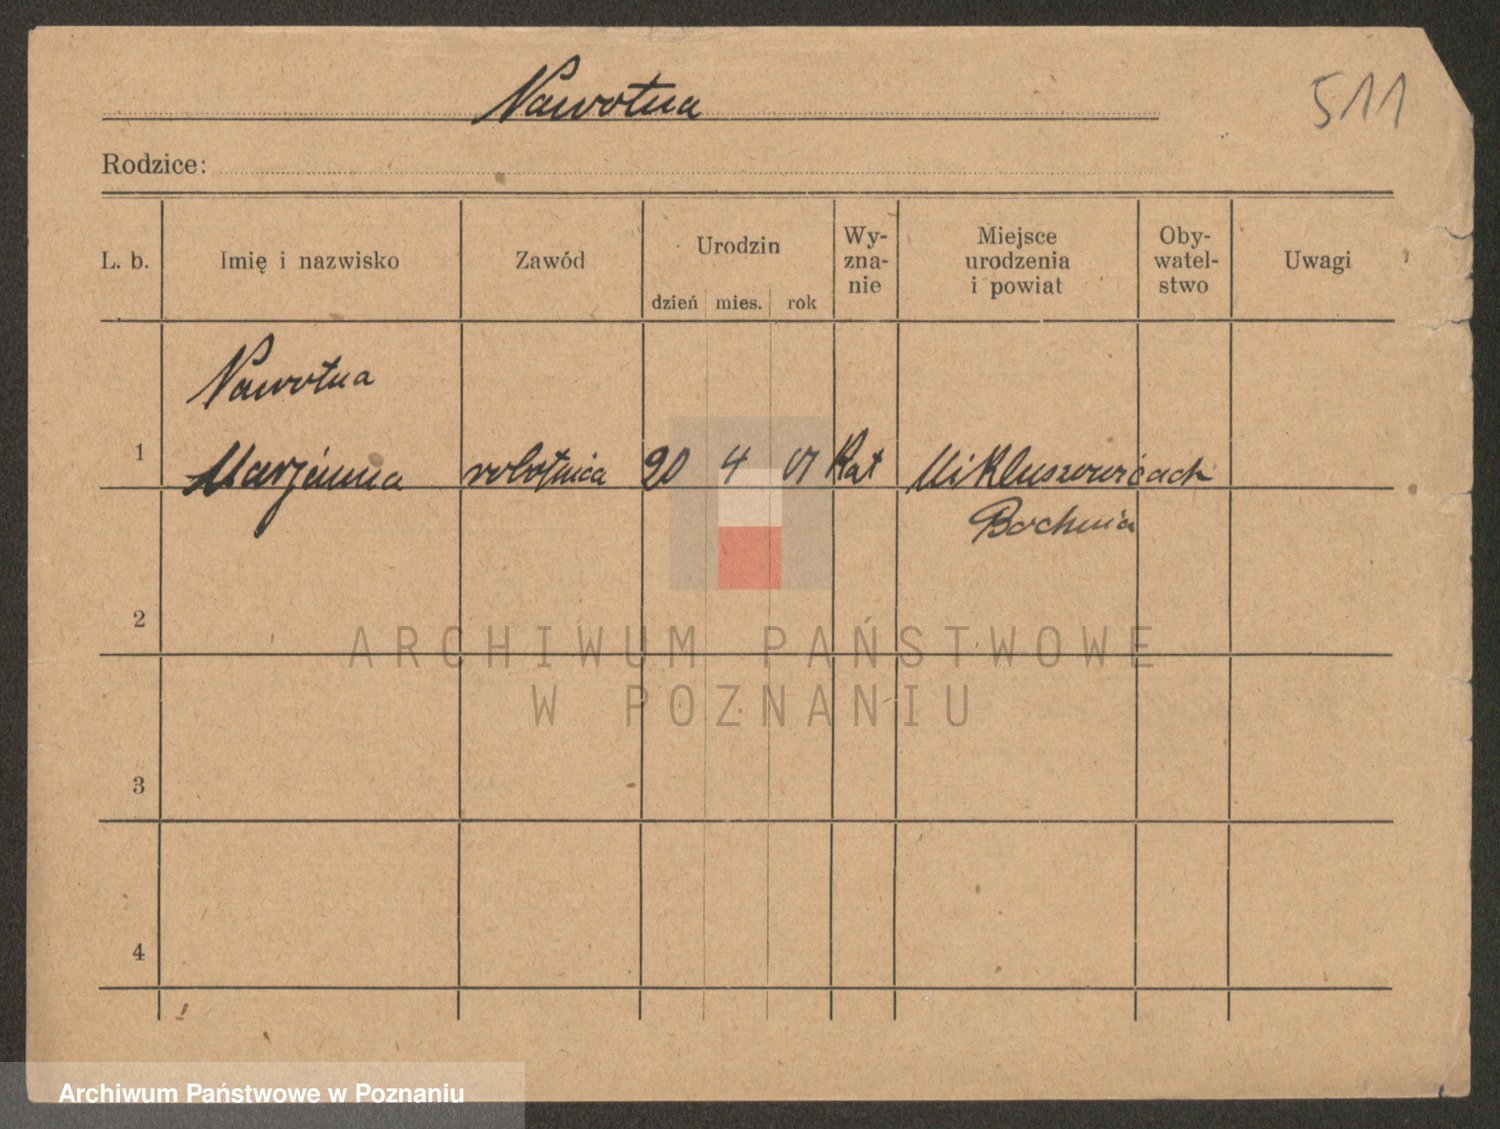 Nawotna
511
Rodzice:
L. b.
Imię i nazwisko
Zawód
Urodzin
dzień
mies.
rok
Wy-
zna-
nie
Miejsce
urodzenia
i powiat
Oby-
watel-
stwo
Uwagi
Nawotna
1
Marjanna
robotnica
20
4
01
Kat
Mikluszowicach
Bochnia
2
3
4
ARCHIWUM PAŃSTWOWE
W POZNANIU
Archiwum Państwowe w Poznaniu